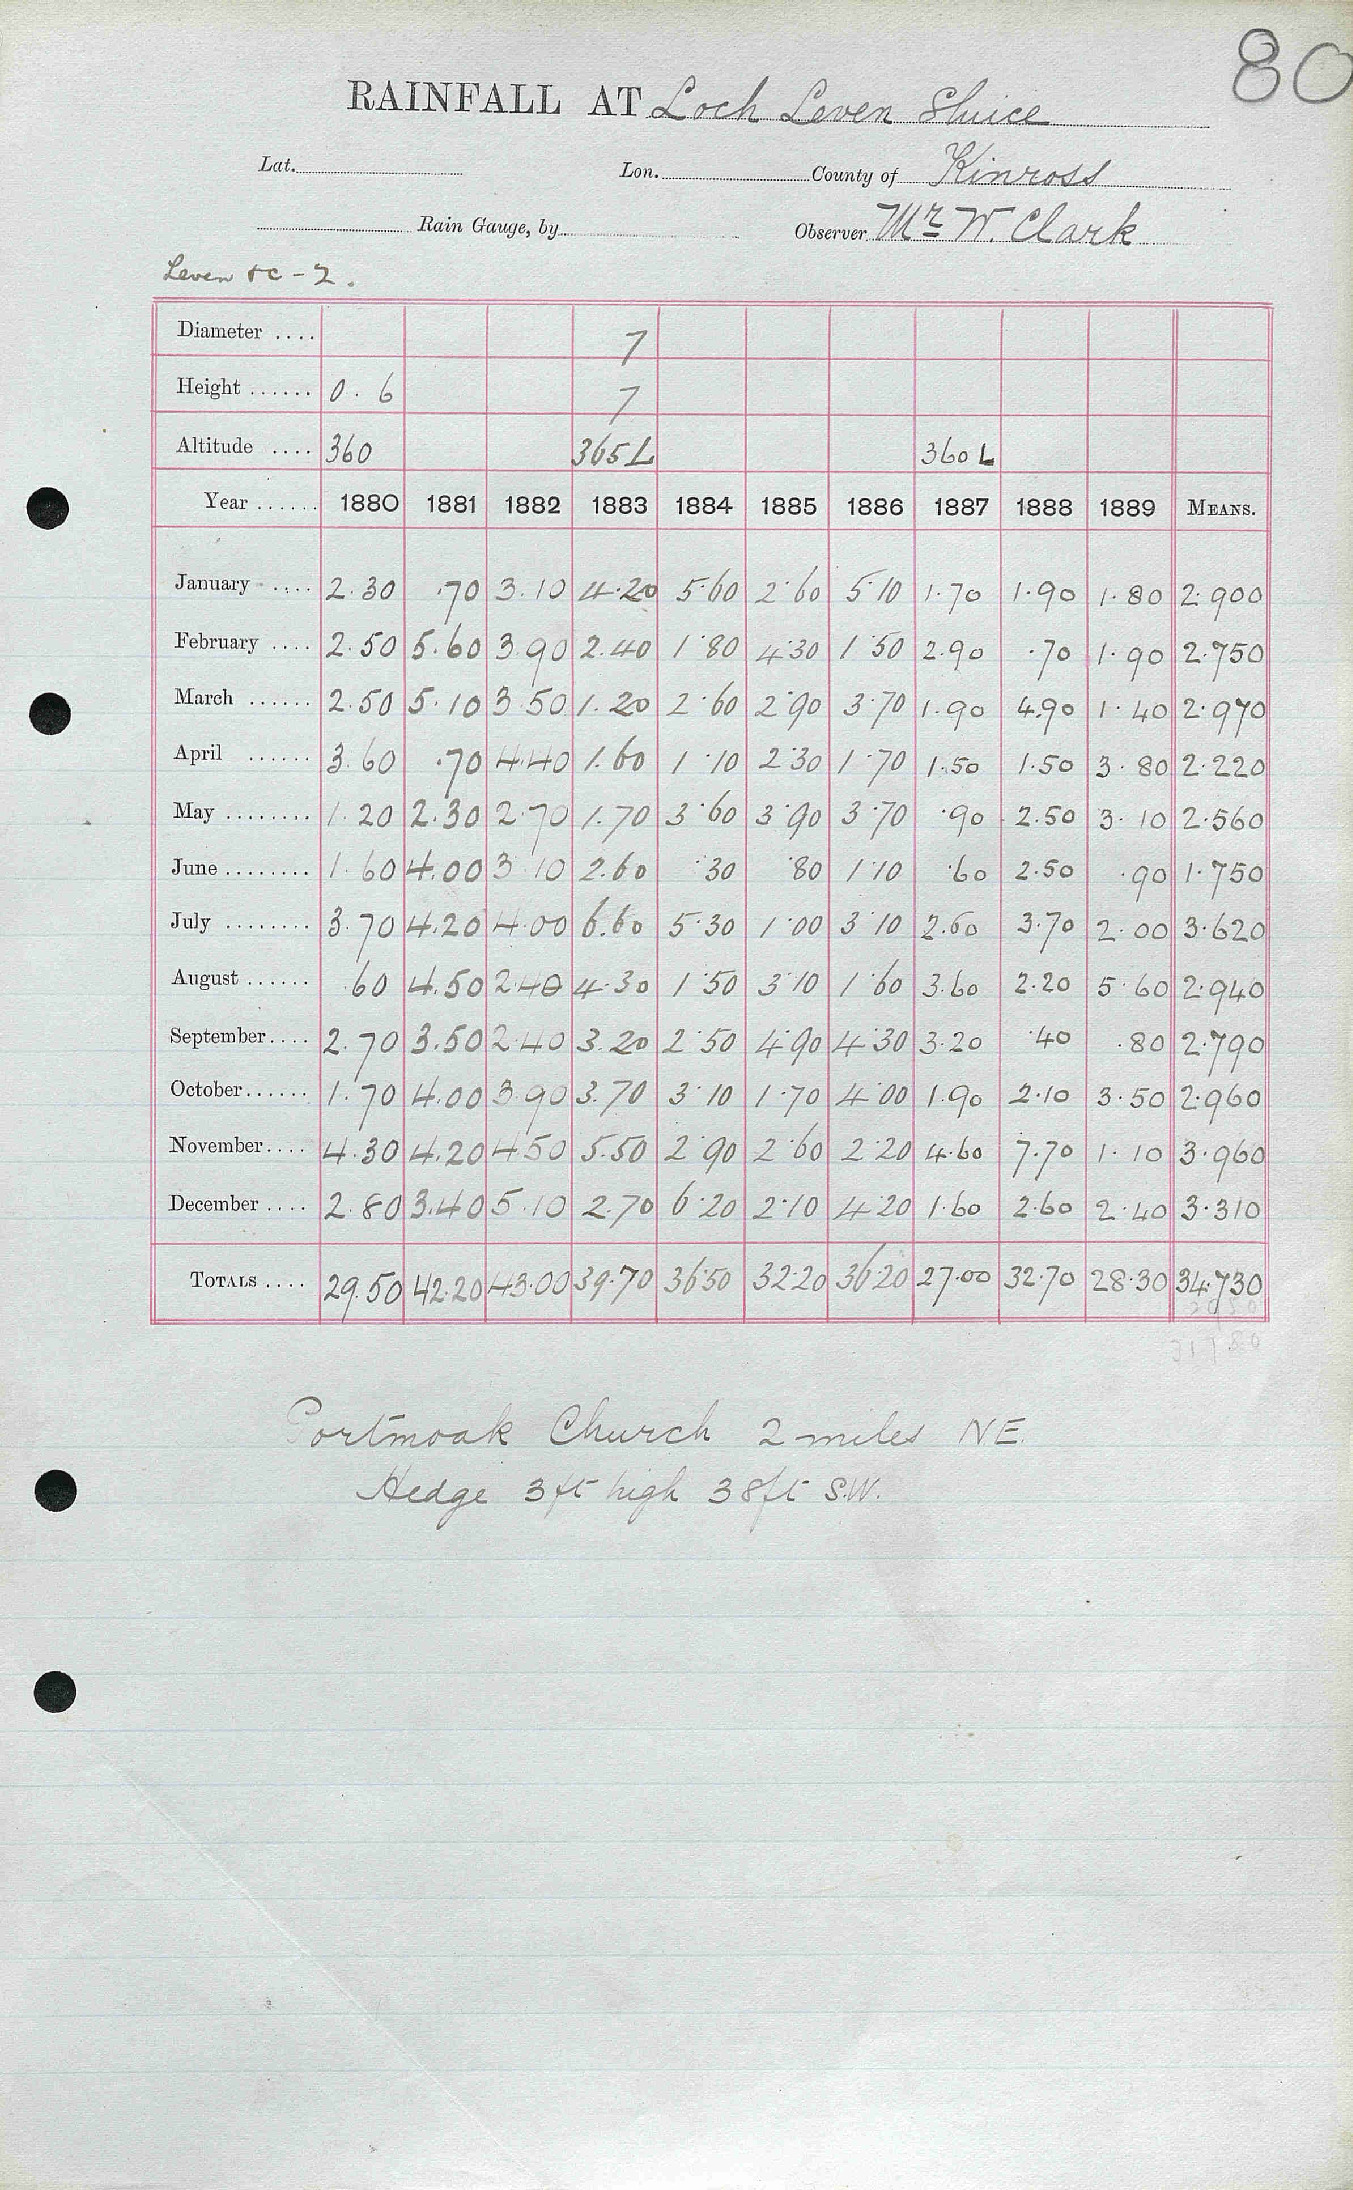 80
RAINFALL AT Loch Leven Sluice
Lat. Lon. County of Kinross
Rain Gauge, by Observer Mr W. Clark
Leven &c - 2.
Diameter .... 7
Height ...... 0. 6 7
Altitude .... 360 365 L 360 L
Year ...... 1880 1881 1882 1883 1884 1885 1886 1887 1888 1889 MEANS.
January .... 2.30 .70 3.10 4.20 5.60 2.60 5.10 1.70 1.90 1.80 2.900
February .... 2.50 5.60 3.90 2.40 1.80 4.30 1.50 2.90 .70 1.90 2.750
March ...... 2.50 5.10 3.50 1.20 2.60 2.90 3.70 1.90 4.90 1.40 2.970
April ...... 3.60 .70 4.40 1.60 1.10 2.30 1.70 1.50 1.50 3.80 2.220
May ........ 1.20 2.30 2.70 1.70 3.60 3.90 3.70 .90 2.50 3.10 2.560
June ........ 1.60 4.00 3.10 2.60 .30 .80 1.10 .60 2.50 .90 1.750
July ........ 3.70 4.20 4.00 6.60 5.30 1.00 3.10 2.60 3.70 2.00 3.620
August ...... .60 4.50 2.40 4.30 1.50 3.10 1.60 3.60 2.20 5.60 2.940
September .... 2.70 3.50 2.40 3.20 2.50 4.90 4.30 3.20 .40 .80 2.790
October ...... 1.70 4.00 3.90 3.70 3.10 1.70 4.00 1.90 2.10 3.50 2.960
November .... 4.30 4.20 4.50 5.50 2.90 2.60 2.20 4.60 7.70 1.10 3.960
December .... 2.80 3.40 5.10 2.70 6.20 2.10 4.20 1.60 2.60 2.40 3.310
TOTALS .... 29.50 42.20 43.00 39.70 36.50 32.20 36.20 27.00 32.70 28.30 34.730
Portmoak Church 2 miles NE.
Hedge 3ft high 38ft S.W.